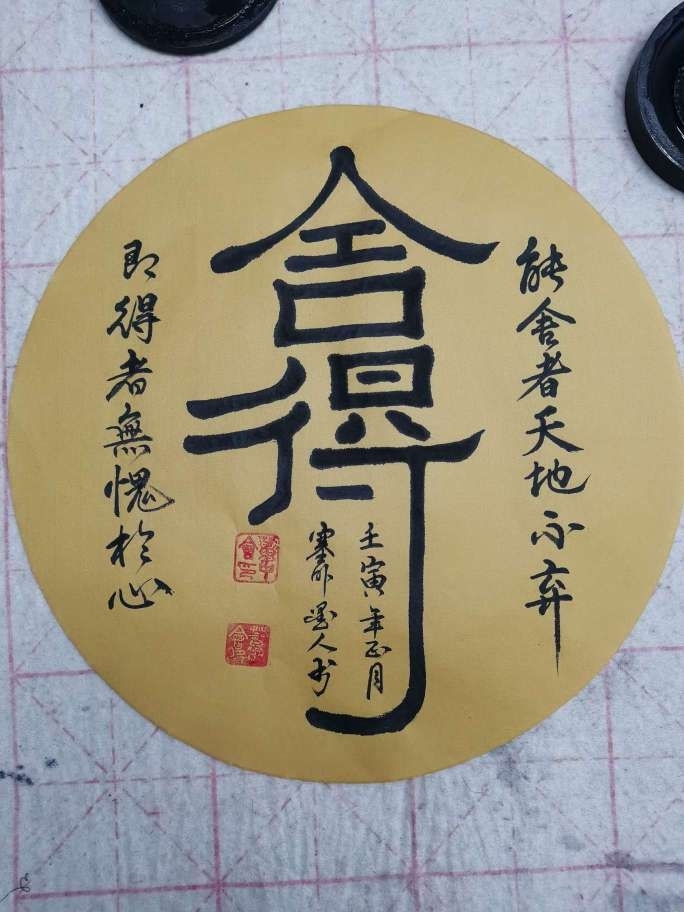 舍得
能舍者天地不弃
即得者無愧於心
壬寅年正月
塞外墨人书